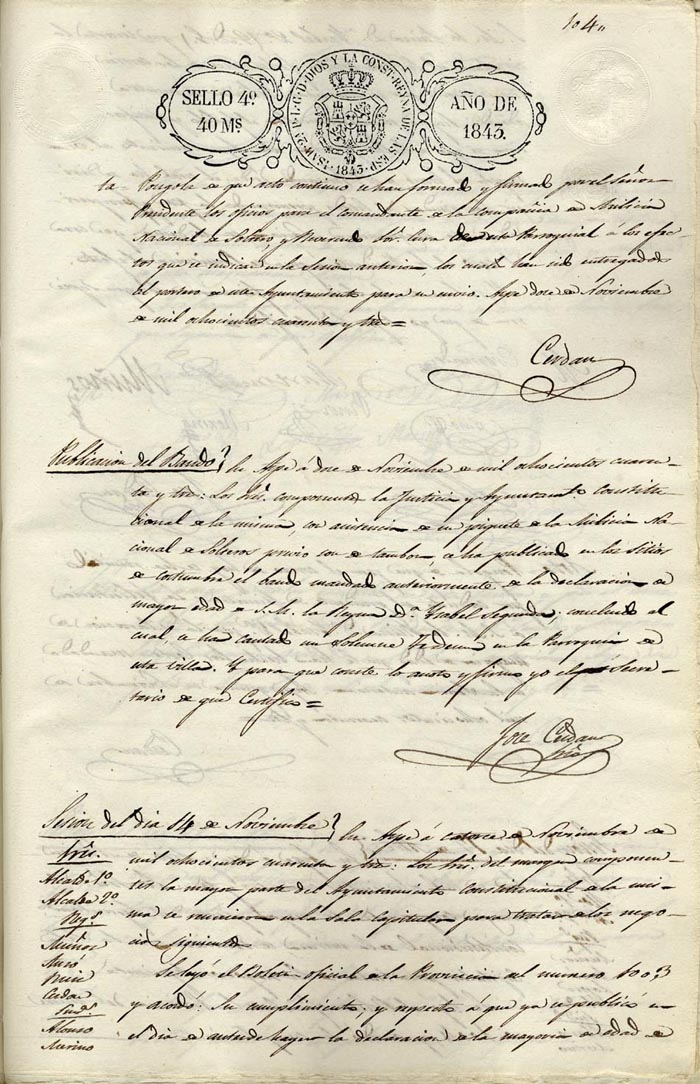 104
SELLO 4º
40 Ms
ISAB. 2ª P. L. G. D. DIOS Y LA CONST. REYNA DE LAS ESP. 1843.
AÑO DE
1843.
Pongola de que acto continuo se han formado y firmado por el Señor
Presidente los oficios para el comandante de la compañia de Milicia
Nacional de Solteros y Reverendo Sor. Cura de esta Parroquial a los efec-
tos que se indican en la Sesion anterior, los cuales han sido entregados
al portero de este Ayuntamiento para su envio. Aspe doce de Noviembre
de mil ochocientos cuarenta y tres=
Cerdan
Publicacion del Bando
En Aspe á doce de Noviembre de mil ochocientos cuaren-
ta y tres: Los Sres. componentes la Justicia y Ayuntamto constitu-
cional de la misma, con asistencia de un piquete de la Milicia Na-
cional de Solteros previo son de tambor, se ha publicado en los Sitios
de costumbre el bando mandado anteriormente de la declaracion de
mayor edad de S.M. la Reyna Dª Ysabel Segunda, concluido el
cual, se ha cantado un Solemne Tedeum en la Parroquia de
esta villa. Y para que conste lo anoto y firmo yo el Secre-
tario de que Certifico=
Jose Cerdan
Srio
Sesion del dia 14 de Noviembre
En Aspe á catorce de Noviembre de
mil ochocientos cuarenta y tres: Los Sres. del margen componen-
tes la mayor parte del Ayuntamiento Constitucional de la mis-
ma se reunieron en la Sala Capitular para tratar de los nego-
cios siguientes
Se leyó el Boletin oficial de la Provincia del numero 1003
y acordó: Su cumplimiento, y respecto á que ya se publico en
el dia de antes de hayer la declaracion de la mayoria de edad de
Sres.
Alcalde 1º
Alcalde 2º
Regs
Muñoz
Miró
Cerdan
Sinds
Alonso
Merino